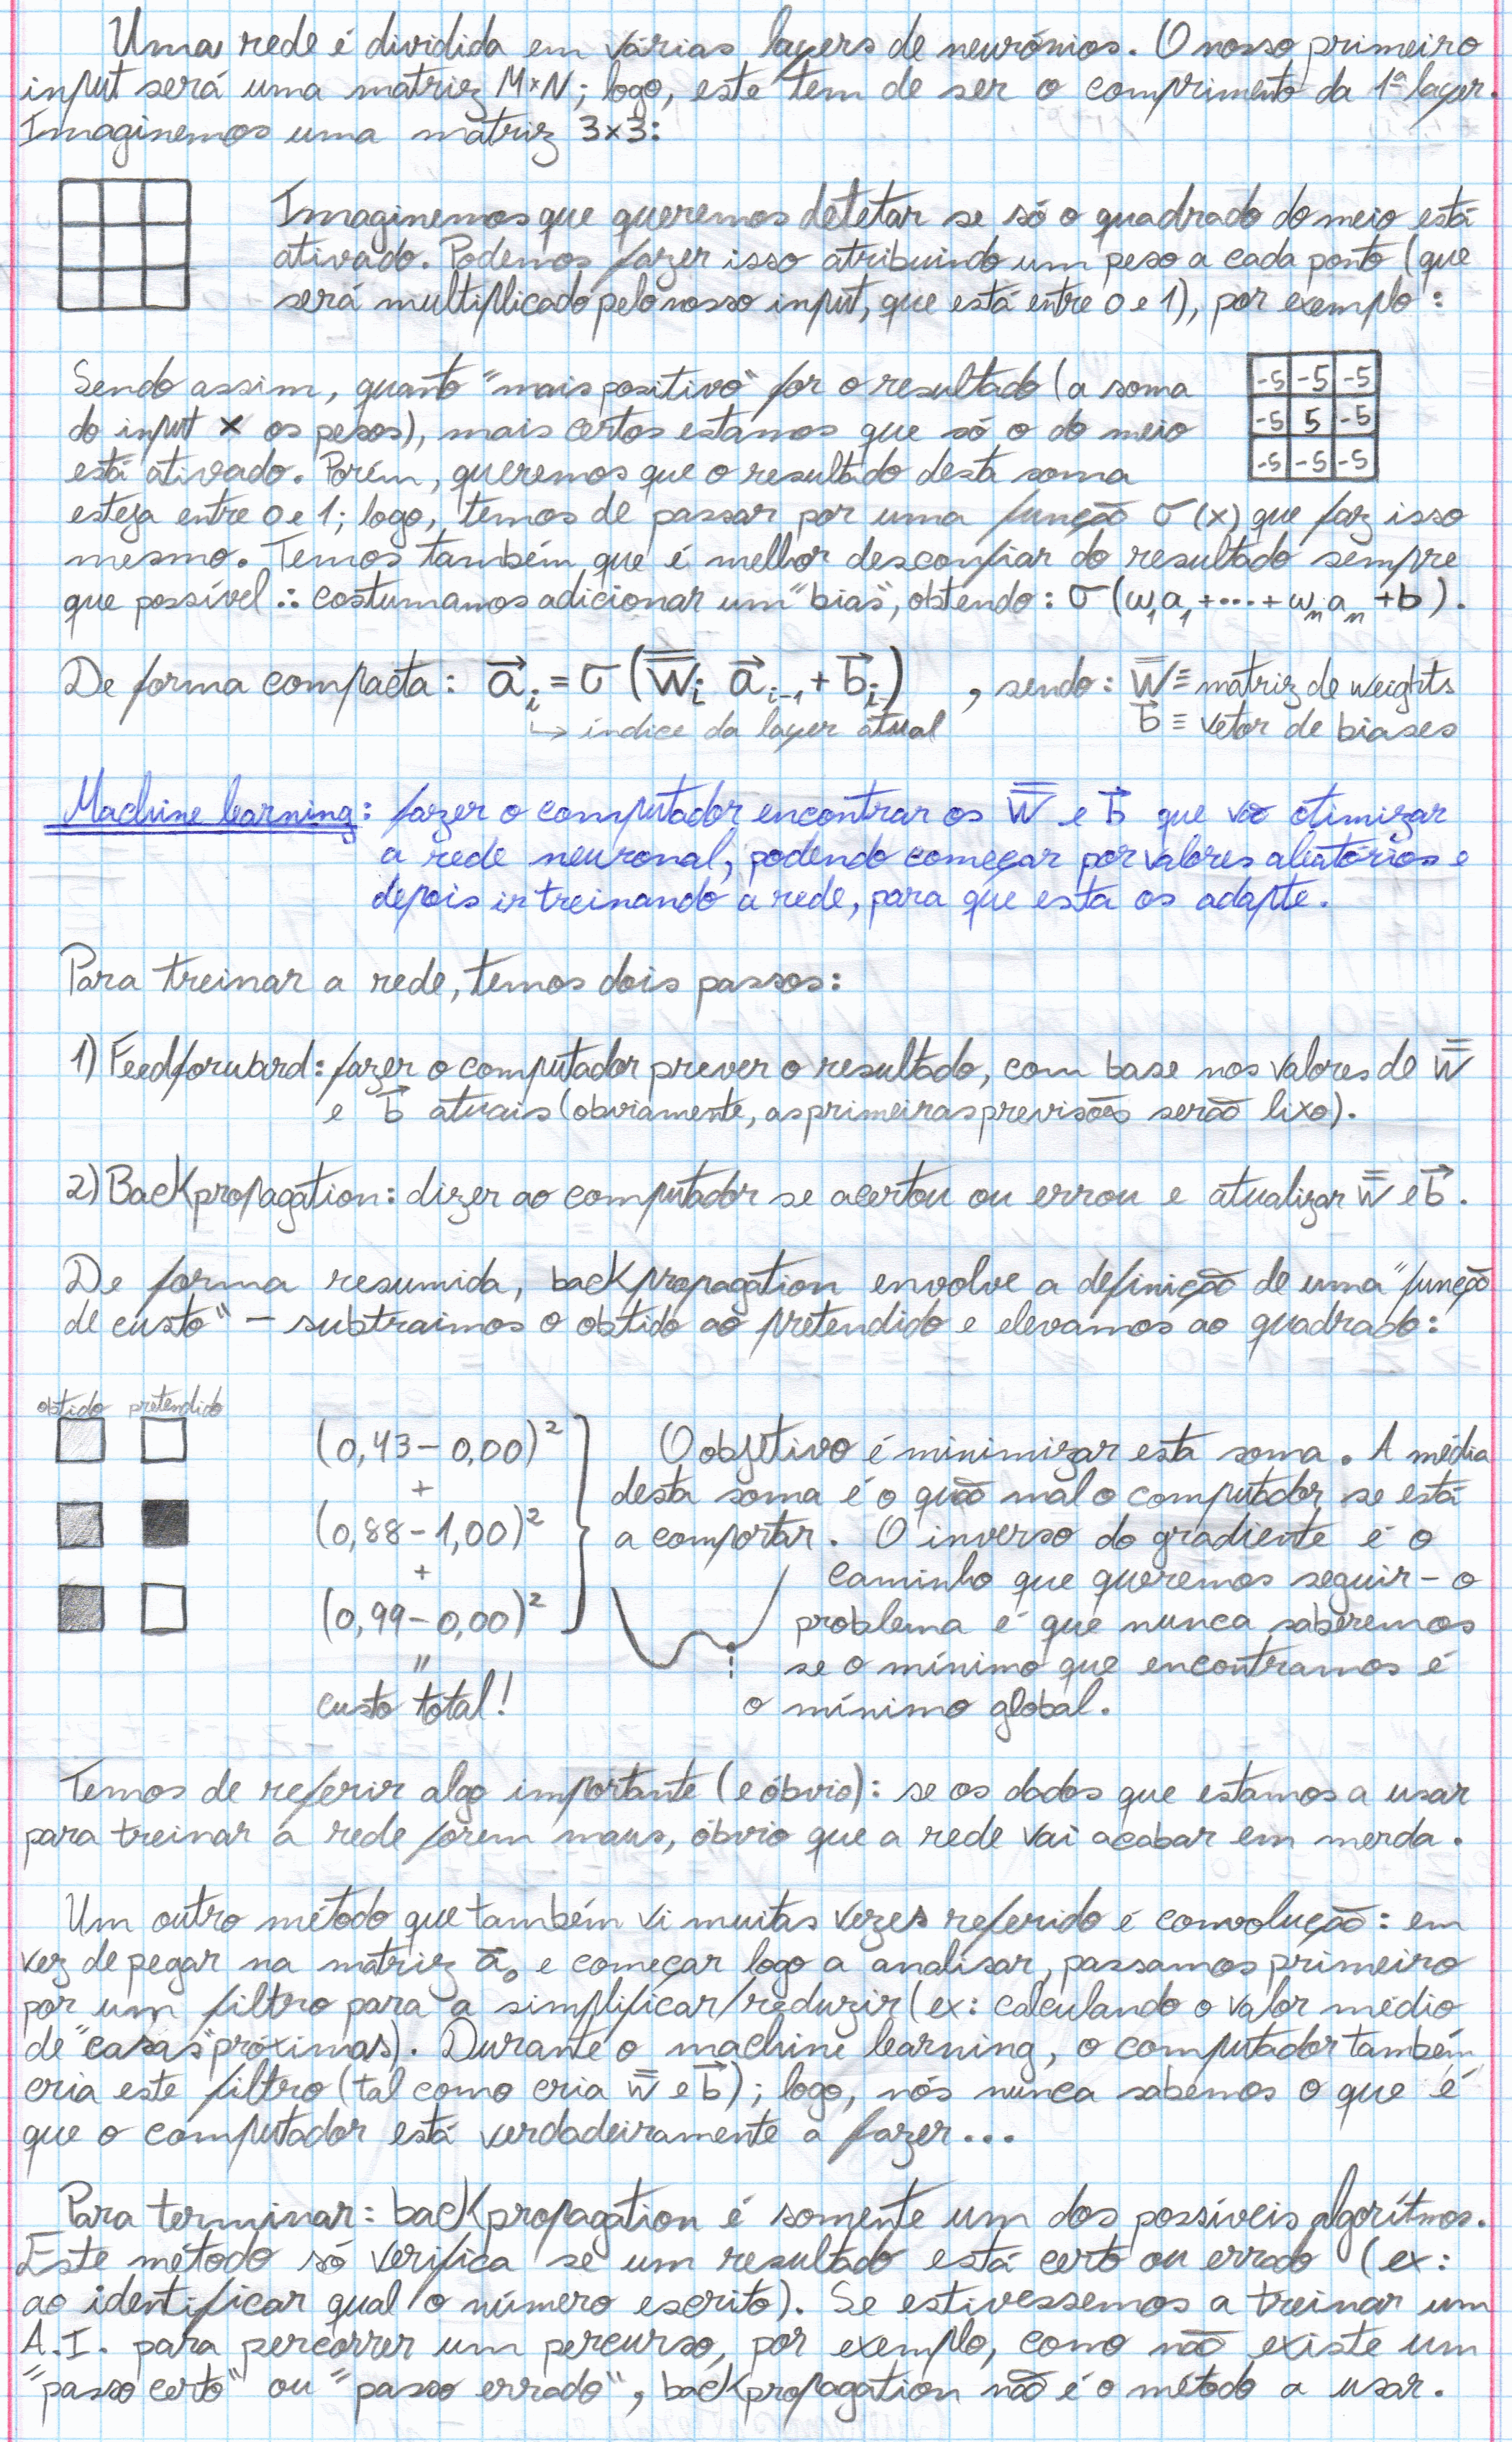 Uma rede é dividida em várias layers de neurónios. O nosso primeiro
input será uma matriz M×N; logo, este tem de ser o comprimento da 1ª layer.
Imaginemos uma matriz 3×3:
Imaginemos que queremos detetar se só o quadrado do meio está
ativado. Podemos fazer isso atribuindo um peso a cada ponto (que
será multiplicado pelo nosso input, que está entre 0 e 1), por exemplo:
Sendo assim, quanto "mais positivo" for o resultado (a soma
do input × os pesos), mais certos estamos que só o do meio
está ativado. Porém, queremos que o resultado desta soma
-5 -5 -5
-5 5 -5
-5 -5 -5
esteja entre 0 e 1; logo, temos de passar por uma função σ(x) que faz isso
mesmo. Temos também que é melhor desconfiar do resultado sempre
que possível ∴ costumamos adicionar um "bias", obtendo: σ(w₁a₁+...+wₙaₙ+b).
De forma compacta: a⃗ᵢ = σ(W̿ᵢ a⃗ᵢ₋₁ + b⃗ᵢ) , sendo: W̿ ≡ matriz de weights
↳ índice da layer atual b⃗ ≡ vetor de biases
Machine learning: fazer o computador encontrar os W̿ e b⃗ que vão otimizar
a rede neuronal, podendo começar por valores aleatórios e
depois ir treinando a rede, para que esta os adapte.
Para treinar a rede, temos dois passos:
1) Feedforward: fazer o computador prever o resultado, com base nos valores de W̿
e b⃗ atuais (obviamente, as primeiras previsões serão lixo).
2) Backpropagation: dizer ao computador se acertou ou errou e atualizar W̿ e b⃗.
De forma resumida, backpropagation envolve a definição de uma "função
de custo" – subtraimos o obtido ao pretendido e elevamos ao quadrado:
obtido pretendido
(0,43 – 0,00)²
+
(0,88 – 1,00)²
+
(0,99 – 0,00)²
=
custo total!
O objetivo é minimizar esta soma. A média
desta soma é o quão mal o computador se está
a comportar. O inverso do gradiente é o
caminho que queremos seguir – o
problema é que nunca saberemos
se o mínimo que encontramos é
o mínimo global.
Temos de referir algo importante (e óbvio): se os dados que estamos a usar
para treinar a rede forem maus, óbvio que a rede vai acabar em merda.
Um outro método que também vi muitas vezes referido é convolução: em
vez de pegar na matriz a⃗₀ e começar logo a analisar, passamos primeiro
por um filtro para a simplificar/reduzir (ex: calculando o valor médio
de "casas" próximas). Durante o machine learning, o computador também
cria este filtro (tal como cria W̿ e b⃗); logo, nós nunca sabemos o que é
que o computador está verdadeiramente a fazer...
Para terminar: backpropagation é somente um dos possíveis algoritmos.
Este método só verifica se um resultado está certo ou errado (ex:
ao identificar qual o número escrito). Se estivessemos a treinar um
A.I. para percorrer um percurso, por exemplo, como não existe um
"passo certo" ou "passo errado", backpropagation não é o método a usar.